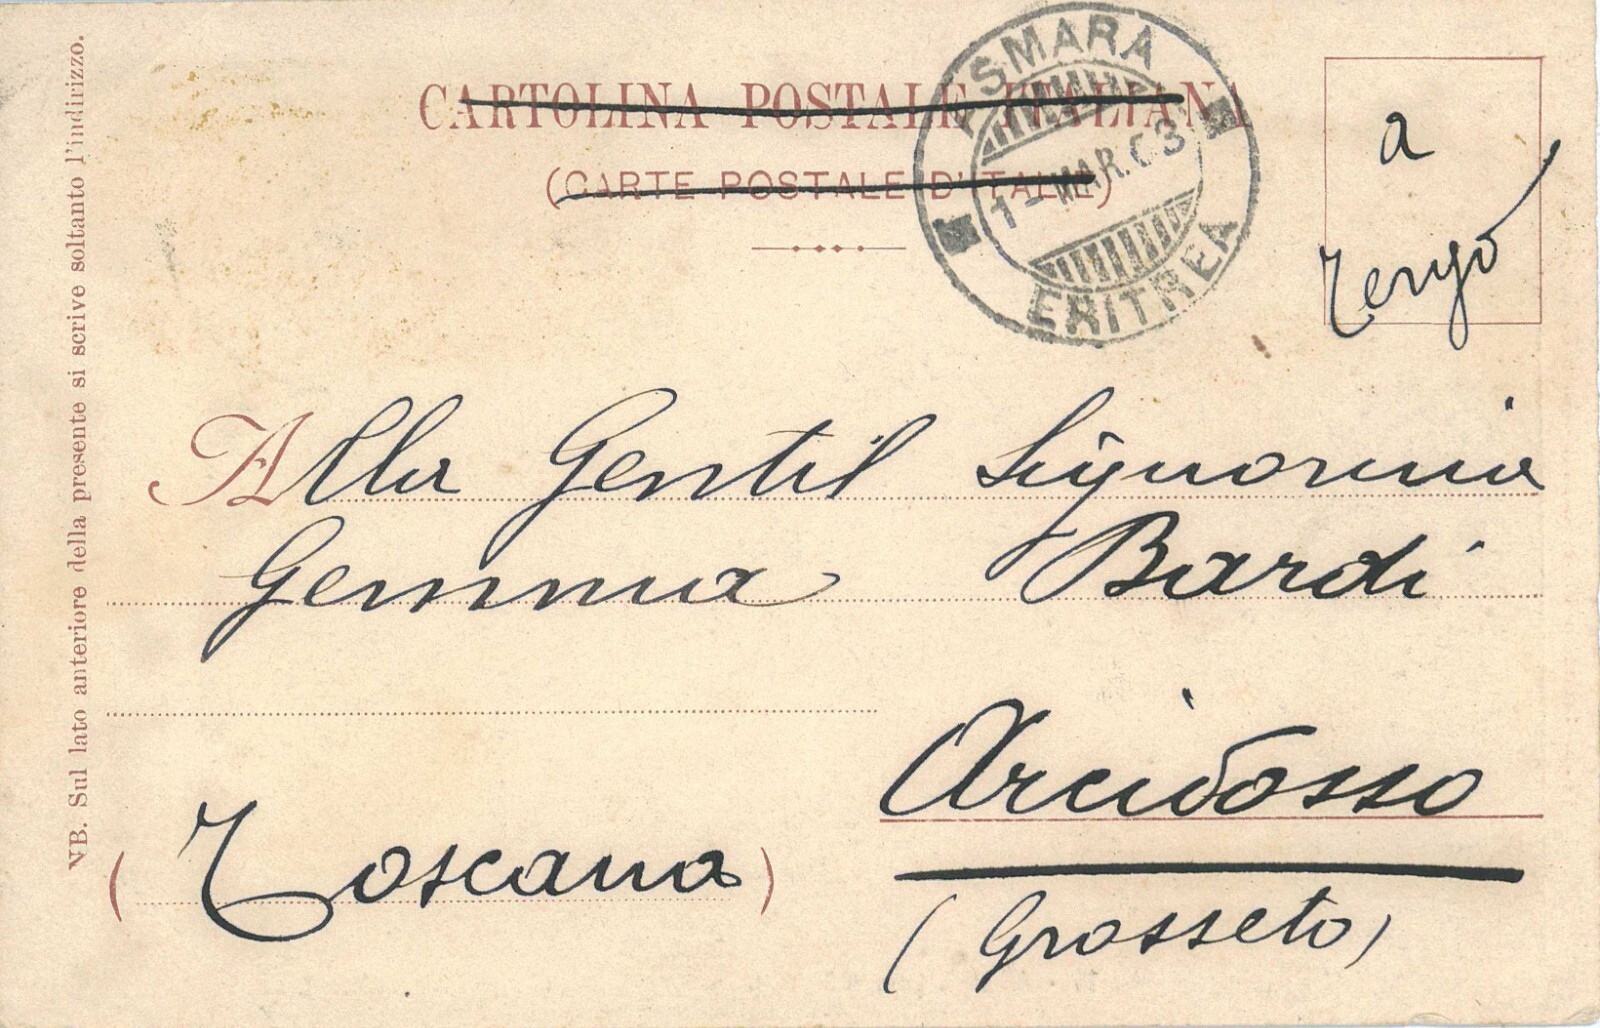 CARTOLINA POSTALE ITALIANA
(CARTE POSTALE D'ITALIE)
ASMARA
1-MAR.03
ERITREA
a
tergo
NB. Sul lato anteriore della presente si scrive soltanto l'indirizzo.
Alla Gentil Signorina
Gemma Bardi
Arcidosso
(Toscana)
(Grosseto)